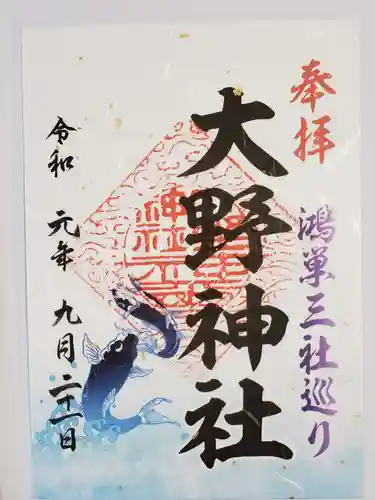 奉拝
鴻巣三社巡り
大野神社
令和 元年 九月 二十一日